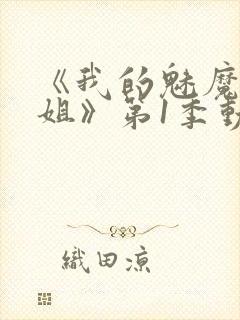 《我的魅魔
姐》第1季動
織田凉